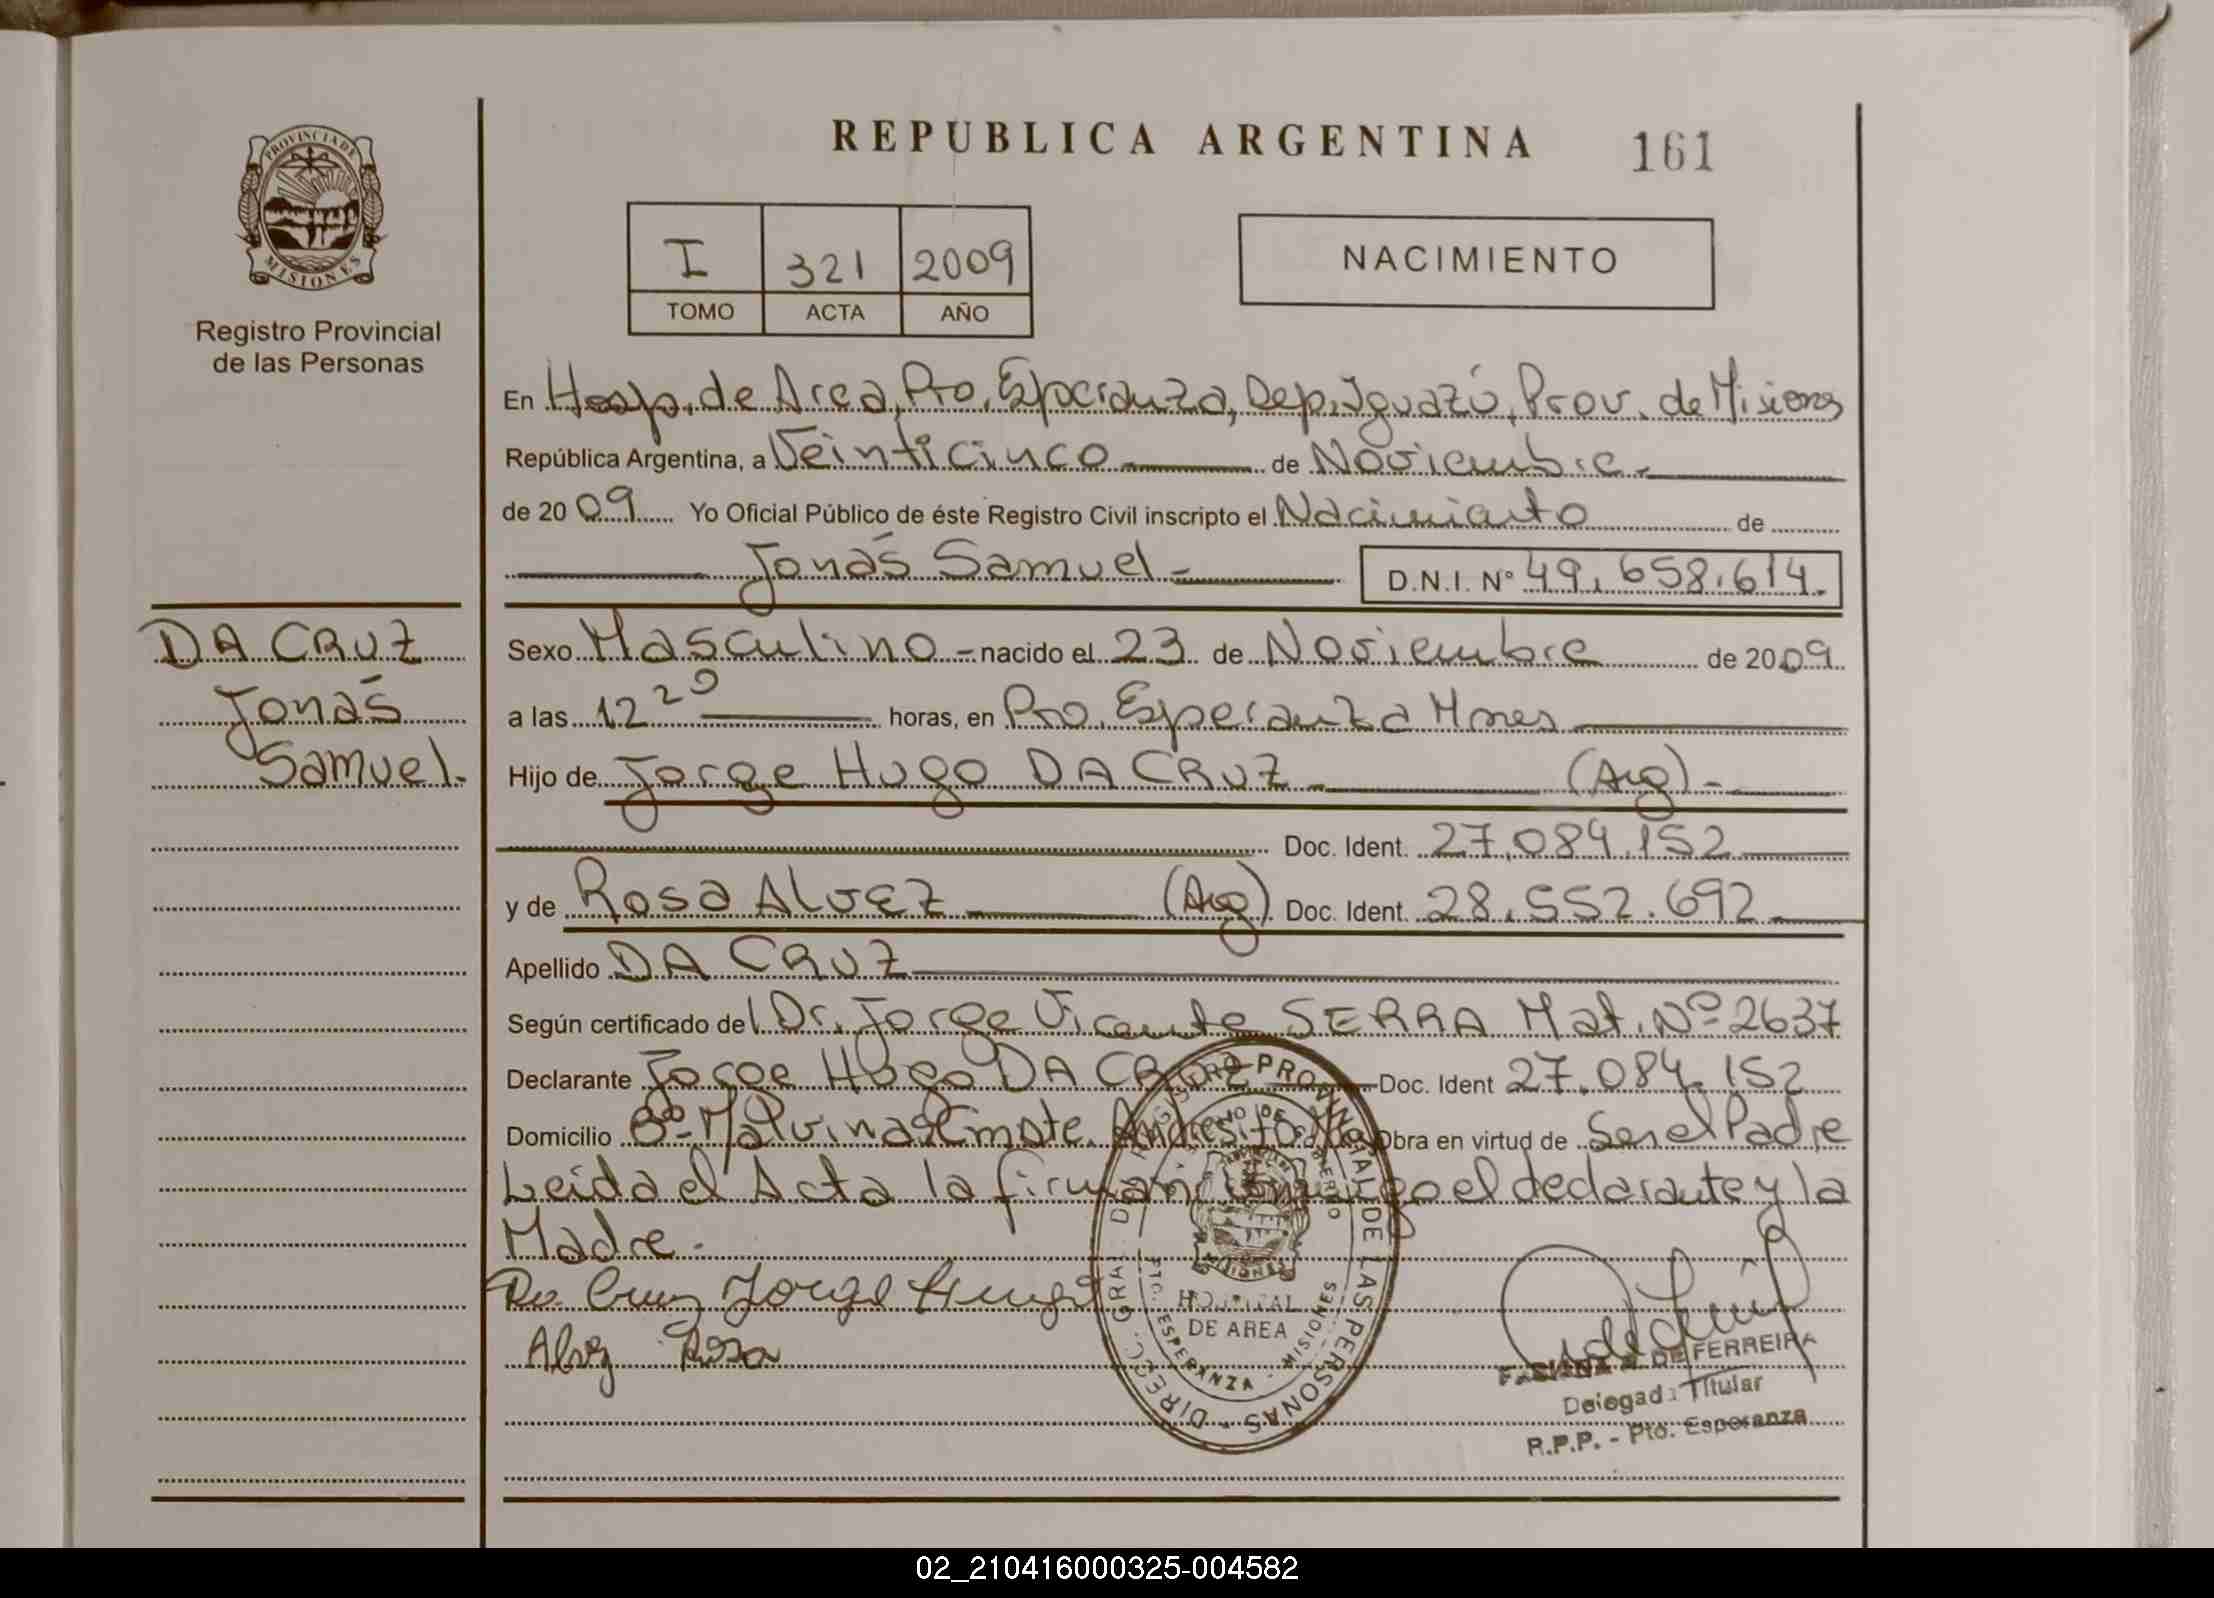 REPUBLICA ARGENTINA
161
PROVINCIA DE
MISIONES
Registro Provincial
de las Personas
I 321 2009
TOMO ACTA AÑO
NACIMIENTO
En Hosp. de Area, Pto. Esperanza, Dep. Iguazú, Prov. de Misiones
República Argentina, a Veinticinco de Noviembre.
de 2009 Yo Oficial Público de éste Registro Civil inscripto el Nacimiento de
Jonás Samuel D.N.I. Nº 49.658.614.
DA CRUZ
Jonás
Samuel.
Sexo Masculino nacido el 23 de Noviembre de 2009
a las 12 20 horas, en Pto. Esperanza Mnes
Hijo de Jorge Hugo DA CRUZ (Arg)
Doc. Ident. 27.084.152
y de Rosa ALVEZ (Arg) Doc. Ident. 28.552.692
Apellido DA CRUZ
Según certificado del Dr. Jorge Vicente SERRA Mat. Nº 2637
Declarante Jorge Hugo DA CRUZ Doc. Ident 27.084.152
Domicilio Bº Malvinas Cmdte. Andresito Mnes Obra en virtud de Ser el Padre
Leida el Acta la firman conmigo el declarante y la
Madre.
Da Cruz Jorge Hugo
Alvez Rosa
DIRECC. GRAL. DE REGISTRO PROVINCIAL DE LAS PERSONAS
MISIONES
HOSPITAL
DE AREA
PTO. ESPERANZA - MISIONES
DE FERREIRA
Delegada Titular
R.P.P. - Pto. Esperanza
02_210416000325-004582